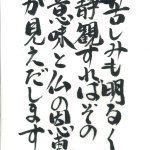 苦しみも明るく
静観すればその
意味と仏の恩寵
が見えだします